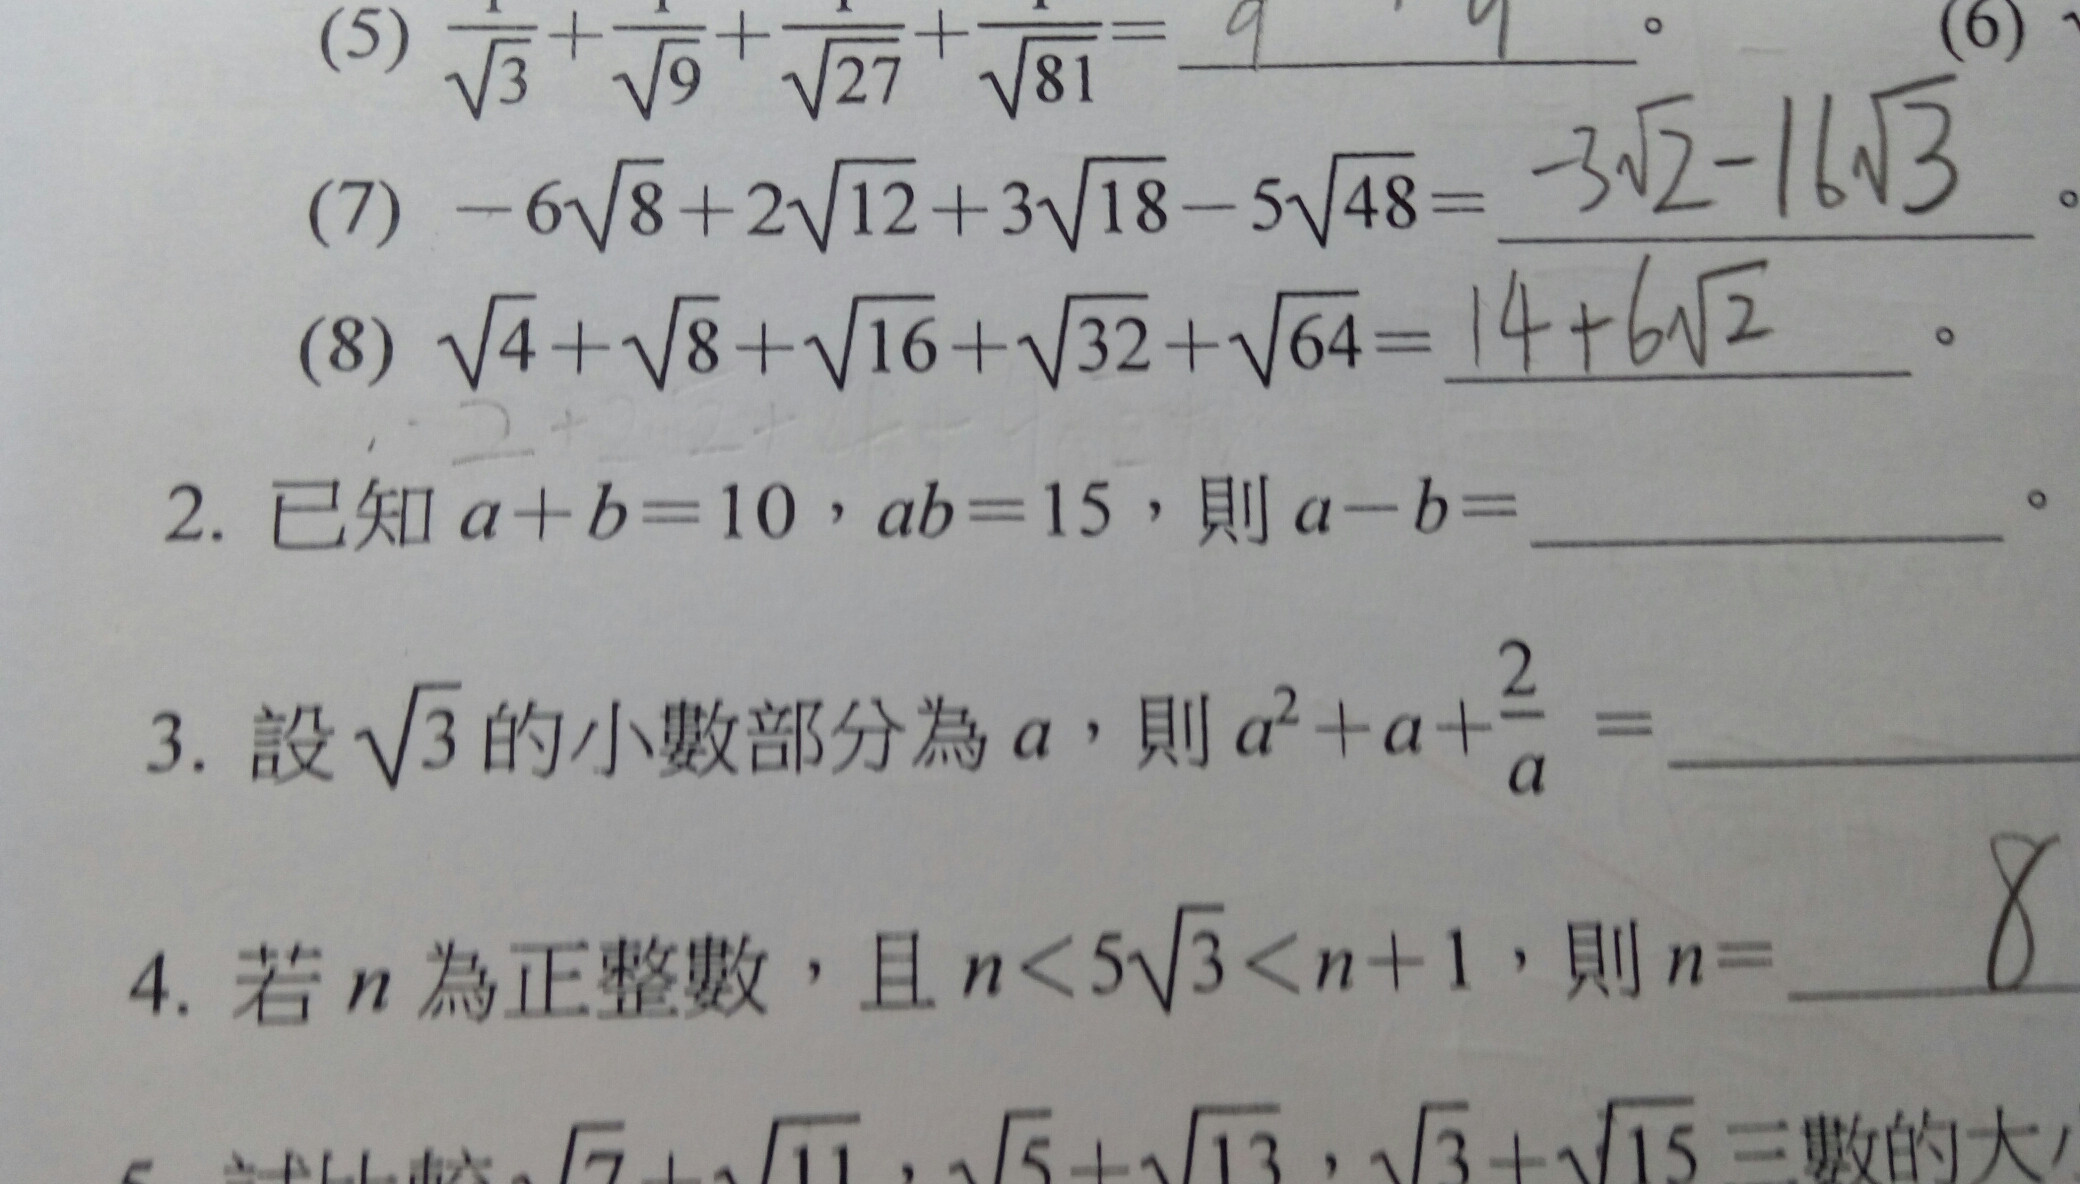 (5) 1/√3 + 1/√9 + 1/√27 + 1/√81 = 9 9 。 (6) √
(7) −6√8+2√12+3√18−5√48= -3√2-16√3 。
(8) √4+√8+√16+√32+√64= 14+6√2 。
2. 已知 a+b=10，ab=15，則 a−b= 。
3. 設 √3 的小數部分為 a，則 a²+a+2/a =
4. 若 n 為正整數，且 n<5√3<n+1，則 n= 8
5. 試比較 √7+√11，√5+√13，√3+√15 三數的大小